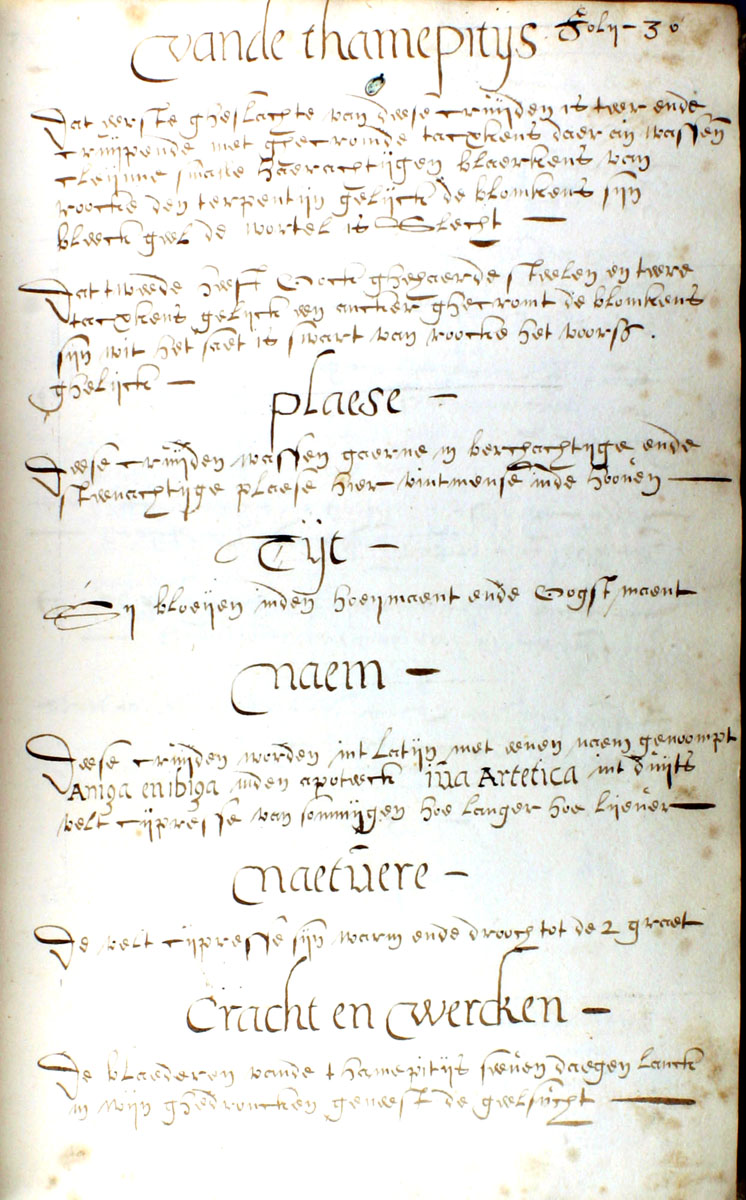 vande thamepitijs folij - 30
Dat eerste gheslachte van deese cruijden is teer ende
cruijpende met ghecromde tacxkens daer an wassen
cleijnne smalle haerachtijgen blaerkens van
roocke den terpentijn gelijck de blomkens sijn
bleeck geel de wortel is Slecht -
Dat tweede heeft Oock ghehaerde steelen en teere
tacxkens gelijck een ancker ghecromt de blomkens
sijn wit het saet is swart van roocke het voors.
ghelijck -
plaese -
Deese cruijden wassen gaerne in berchachtijge ende
steenachtijge plaesen hier vintmense inde hooven -
Tijt -
Sij bloeijen inden hoeijmaent ende Oogst maent
Naem -
Deese cruijden worden int Latijn met eenen naem genoompt
Aniga en ibiga inden apoteeck iua Artetica int duijts
velt cijpresse van sommijgen hoe langer hoe lijever -
Naetuere -
De velt cijpresse sijn warm ende drooch tot de 2 graet
Cracht en Wercken -
De blaederen vande thamepitijs seeven daegen lanck
in wijn ghedroncken geneest de geelsucht -